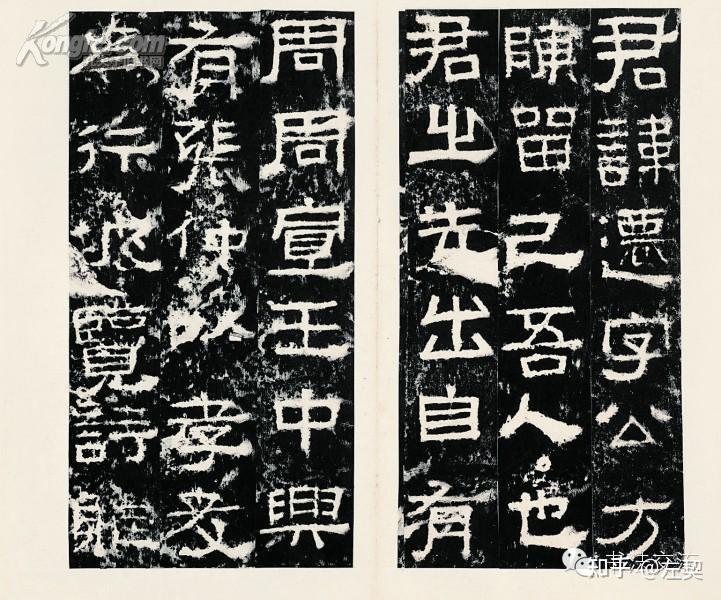 君諱遷字公方
陳留己吾人也
君之先出自有
周周宣王中興
有張仲以孝友
為行披覽詩雅
知乎 @左契